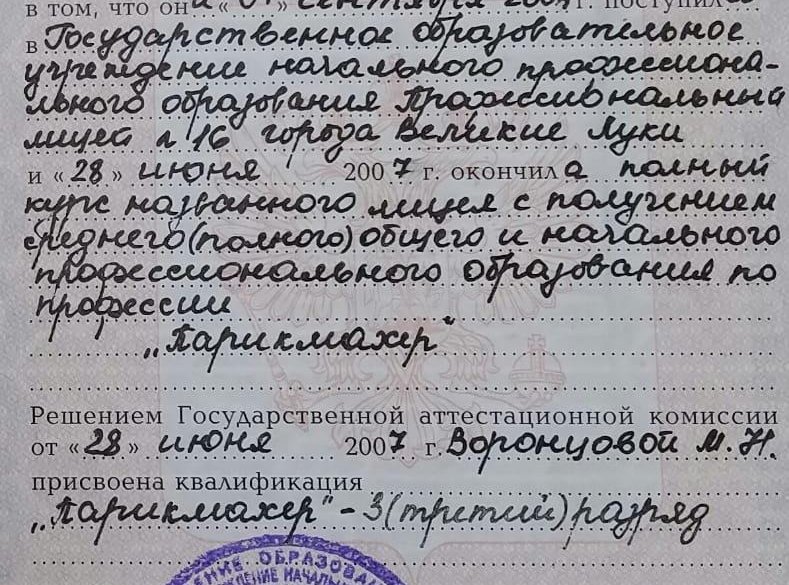 в том, что она « » сентября 200 г. поступила
в Государственное образовательное
учреждение начального профессиона-
льного образования Профессиональный
лицей №16 города Великие Луки
и «28» июня 2007 г. окончила полный
курс названного лицея с получением
среднего (полного) общего и начального
профессионального образования по
профессии
„Парикмахер“
Решением Государственной аттестационной комиссии
от «28» июня 2007 г. Воронцовой М.Н.
присвоена квалификация
„Парикмахер“ - 3 (третий) разряд
ЕНИЕ ОБРАЗОВАН
ДЕНИЕ НАЧАЛЬ